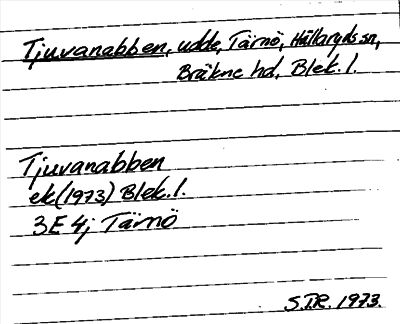 Tjuvanabben, udde, Tärnö, Hällaryds sn,
Bräkne hd, Blek. l.
Tjuvanabben
ek (1973) Blek. l.
3E 4j Tärnö
S.T.R. 1973.